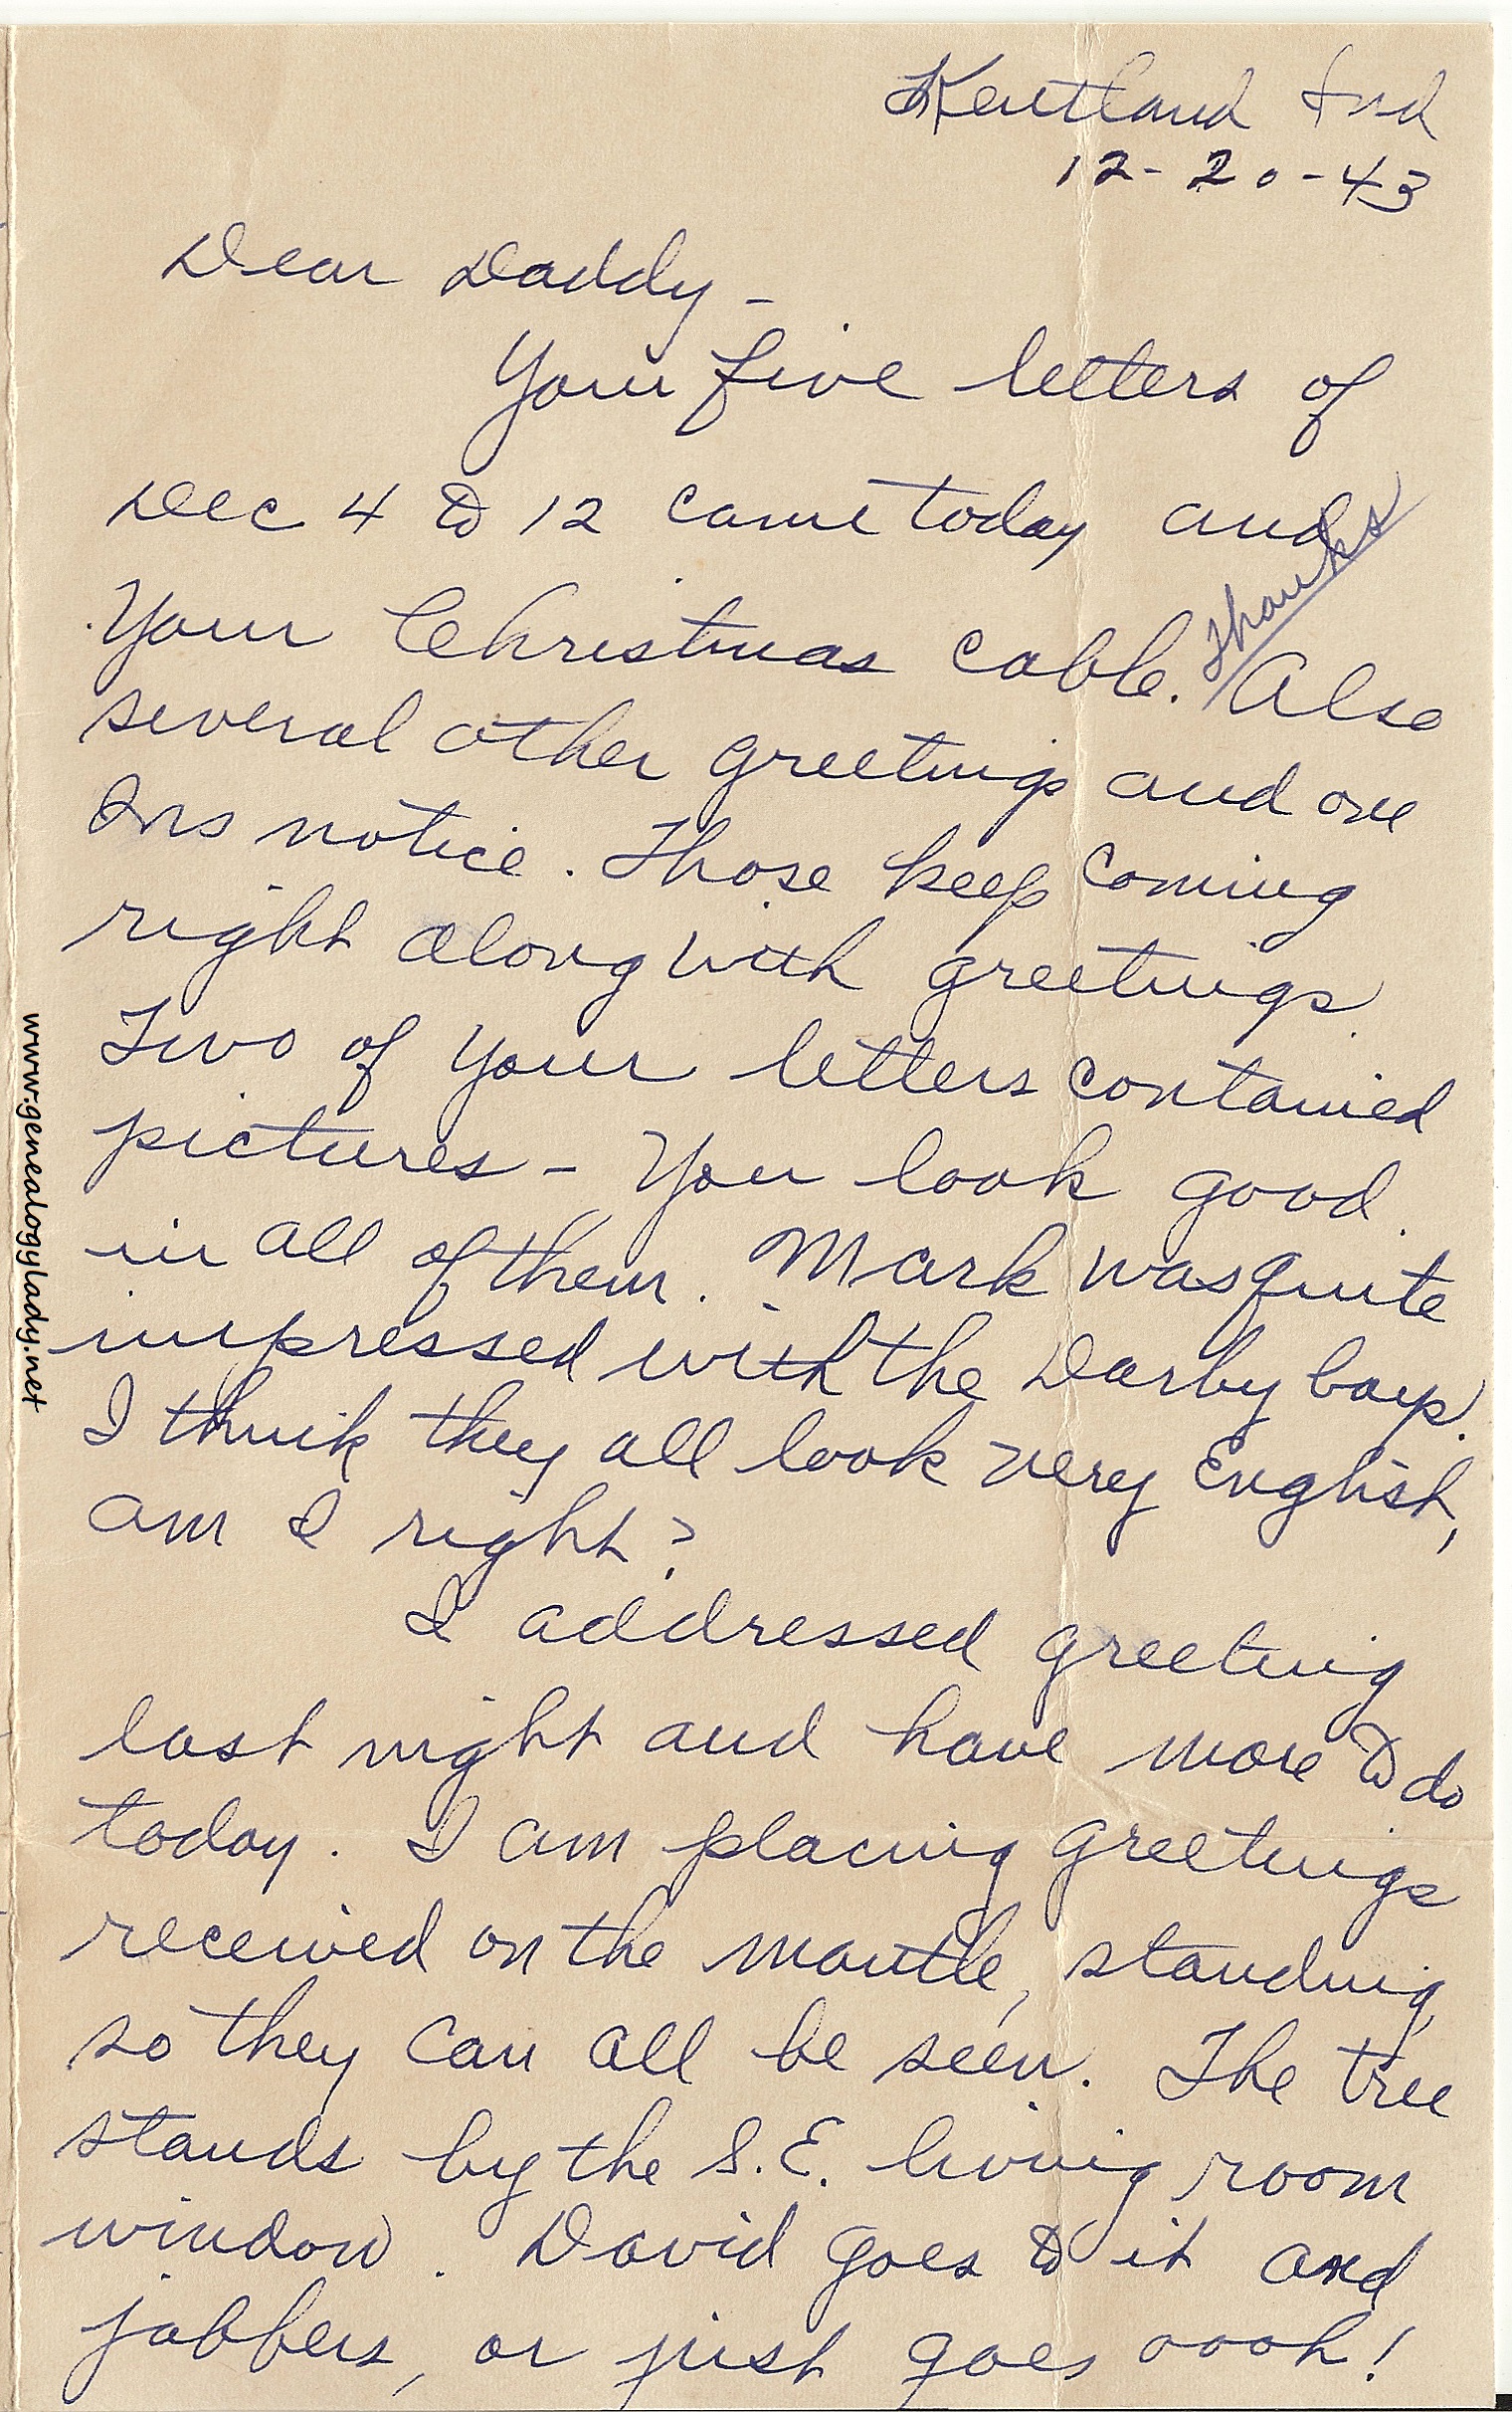 Kentland Ind
12-20-43
Dear Daddy -
Your five letters of
Dec 4 to 12 came today and
Your Christmas cable. Thanks Also
several other greetings and one
Ins notice. Those keep coming
right along with greetings.
Two of your letters contained
pictures - You look good
in all of them. Mark was quite
impressed with the Darby boys.
I think they all look very English,
am I right?
I addressed greeting
last night and have more to do
today. I am placing greetings
received on the mantle, standing
so they can all be seen. The tree
stands by the S.E. living room
window. David goes to it and
jabbers, or just goes oooh!
www.genealogylady.net